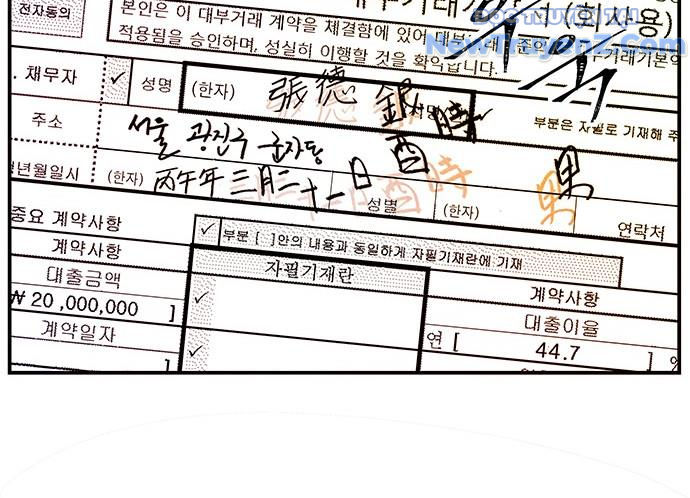 전자동의
본인은 이 대부거래 계약을 체결함에 있어 대부
적용됨을 승인하며, 성실히 이행할 것을 확약합니다.
채무자 ✓ 성명 (한자) 張德銀
부분은 자필로 기재해 주
주소 서울 광진구 군자동
(한자) 丙午年 三月二十一日 酉時 성별 (한자) 男 연락처
중요 계약사항 ✓ 부분 [ ]안의 내용과 동일하게 자필기재란에 기재
계약사항 자필기재란 계약사항
대출금액 ✓ 대출이율
₩ 20,000,000 ] 연 [ 44.7 ] %
계약일자 ✓
]